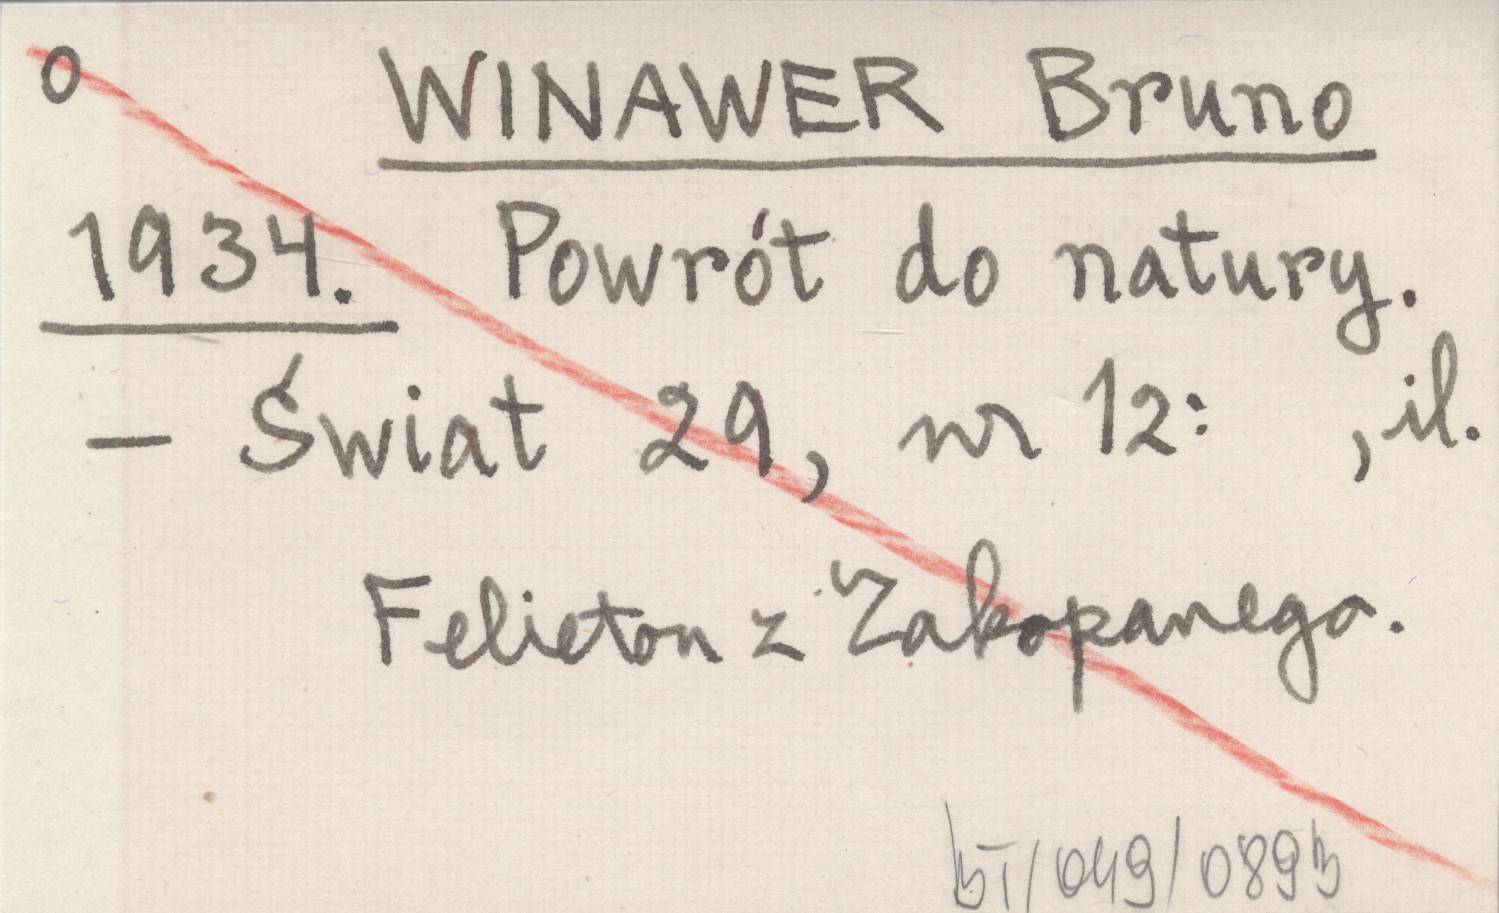 o WINAWER Bruno
1934. Powrót do natury.
– Świat 29, nr 12: , il.
Felieton z Zakopanego.
bT/049/0893